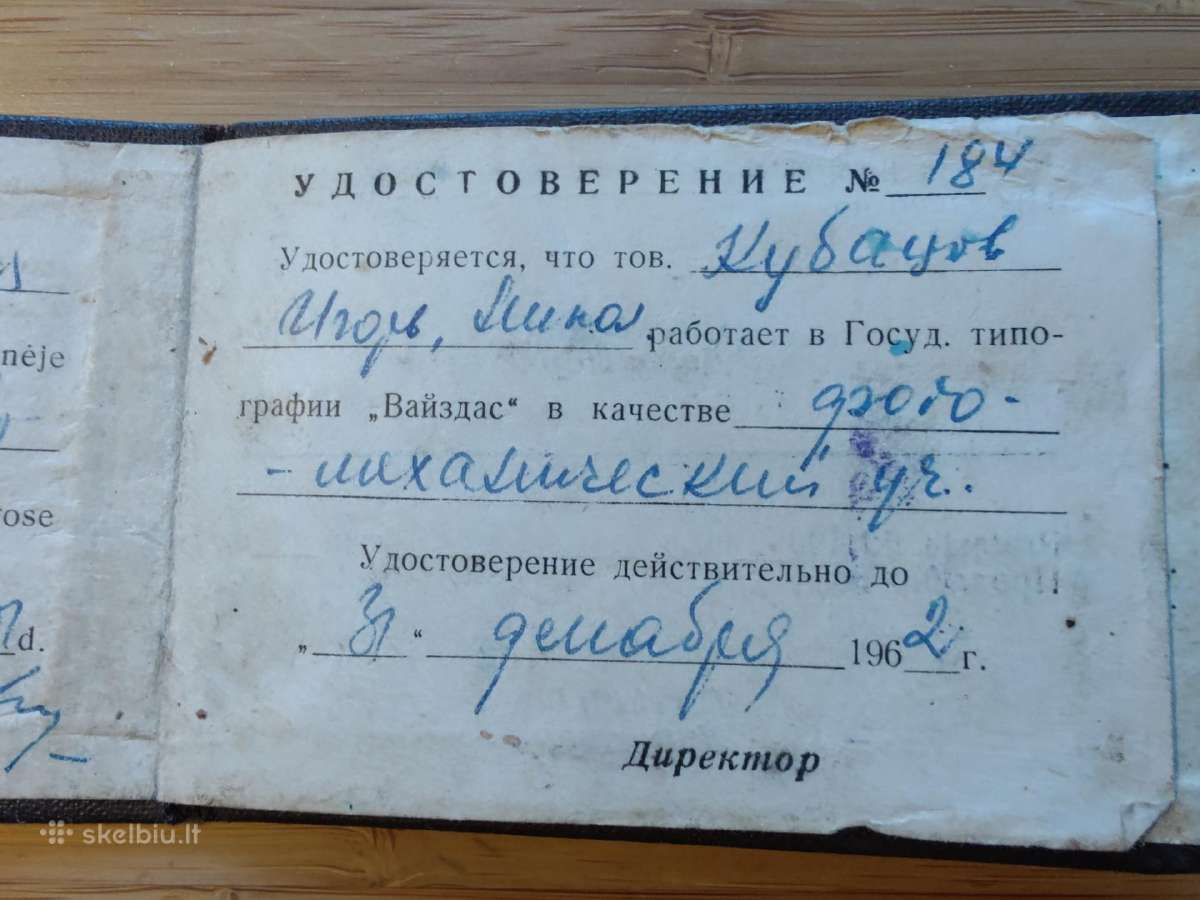 УДОСТОВЕРЕНИЕ № 184
Удостоверяется, что тов. Кубацов
Игорь, работает в Госуд. типо-
графии „Вайздас“ в качестве фото-
-механический уч.
Удостоверение действительно до
„31“ декабря 1962 г.
Директор
nėje
rose
d.
skelbiu.lt